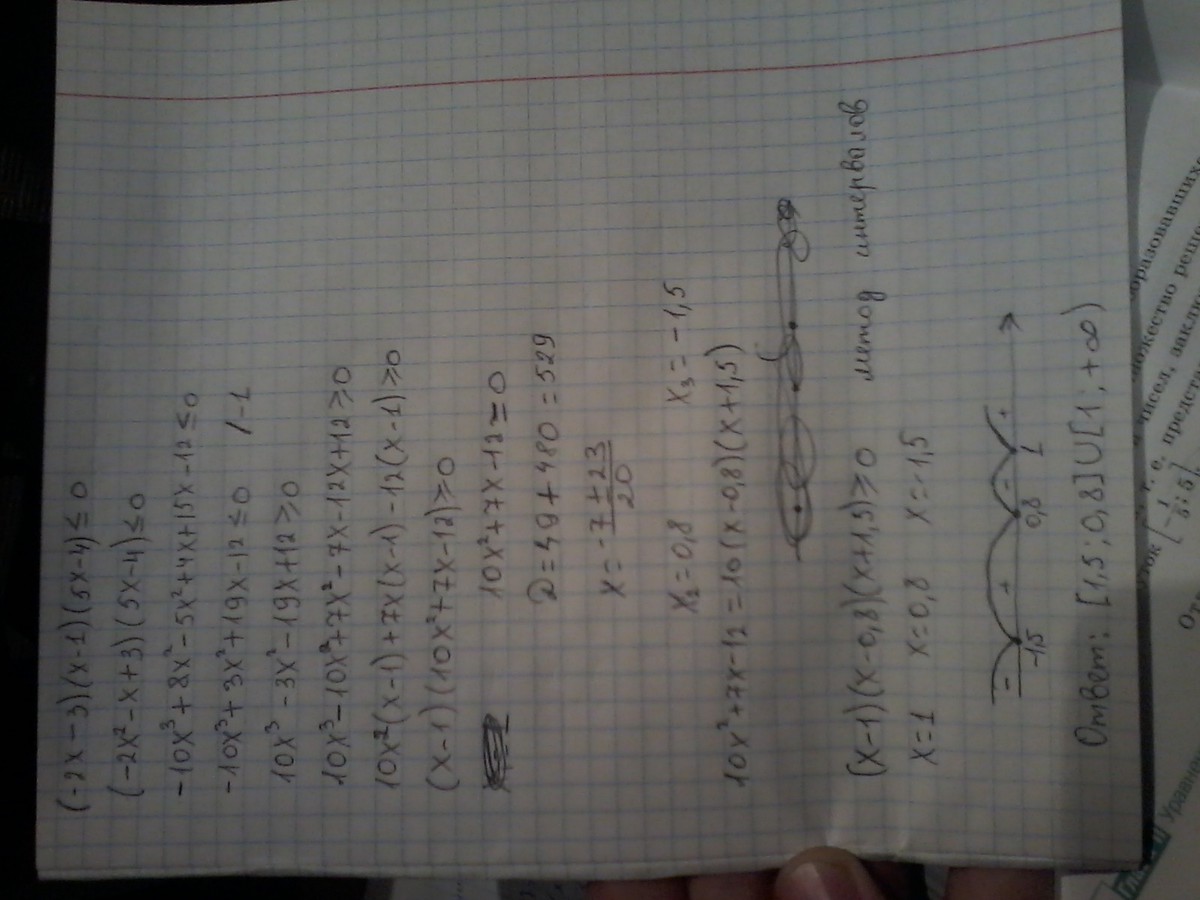 (-2x-3)(x-1)(5x-4)≤0
(-2x²-x+3)(5x-4)≤0
-10x³+8x²-5x²+4x+15x-12≤0
-10x³+3x²+19x-12≤0 /-1
10x³-3x²-19x+12≥0
10x³-10x²+7x²-7x-12x+12≥0
10x²(x-1)+7x(x-1)-12(x-1)≥0
(x-1)(10x²+7x-12)≥0
10x²+7x-12=0
D=49+480=529
x=-7±23/20
x₂=0,8 x₃=-1,5
10x²+7x-12=10(x-0,8)(x+1,5)
(x-1)(x-0,8)(x+1,5)≥0 метод интервалов
x=1 x=0,8 x=-1,5
- + - +
-1,5 0,8 1
Ответ: [1,5;0,8]U[1;+∞)
разовавшихс
ножество реше
чисел, заклю
т. е. представ
ток [-1/8; 5]
Уравне